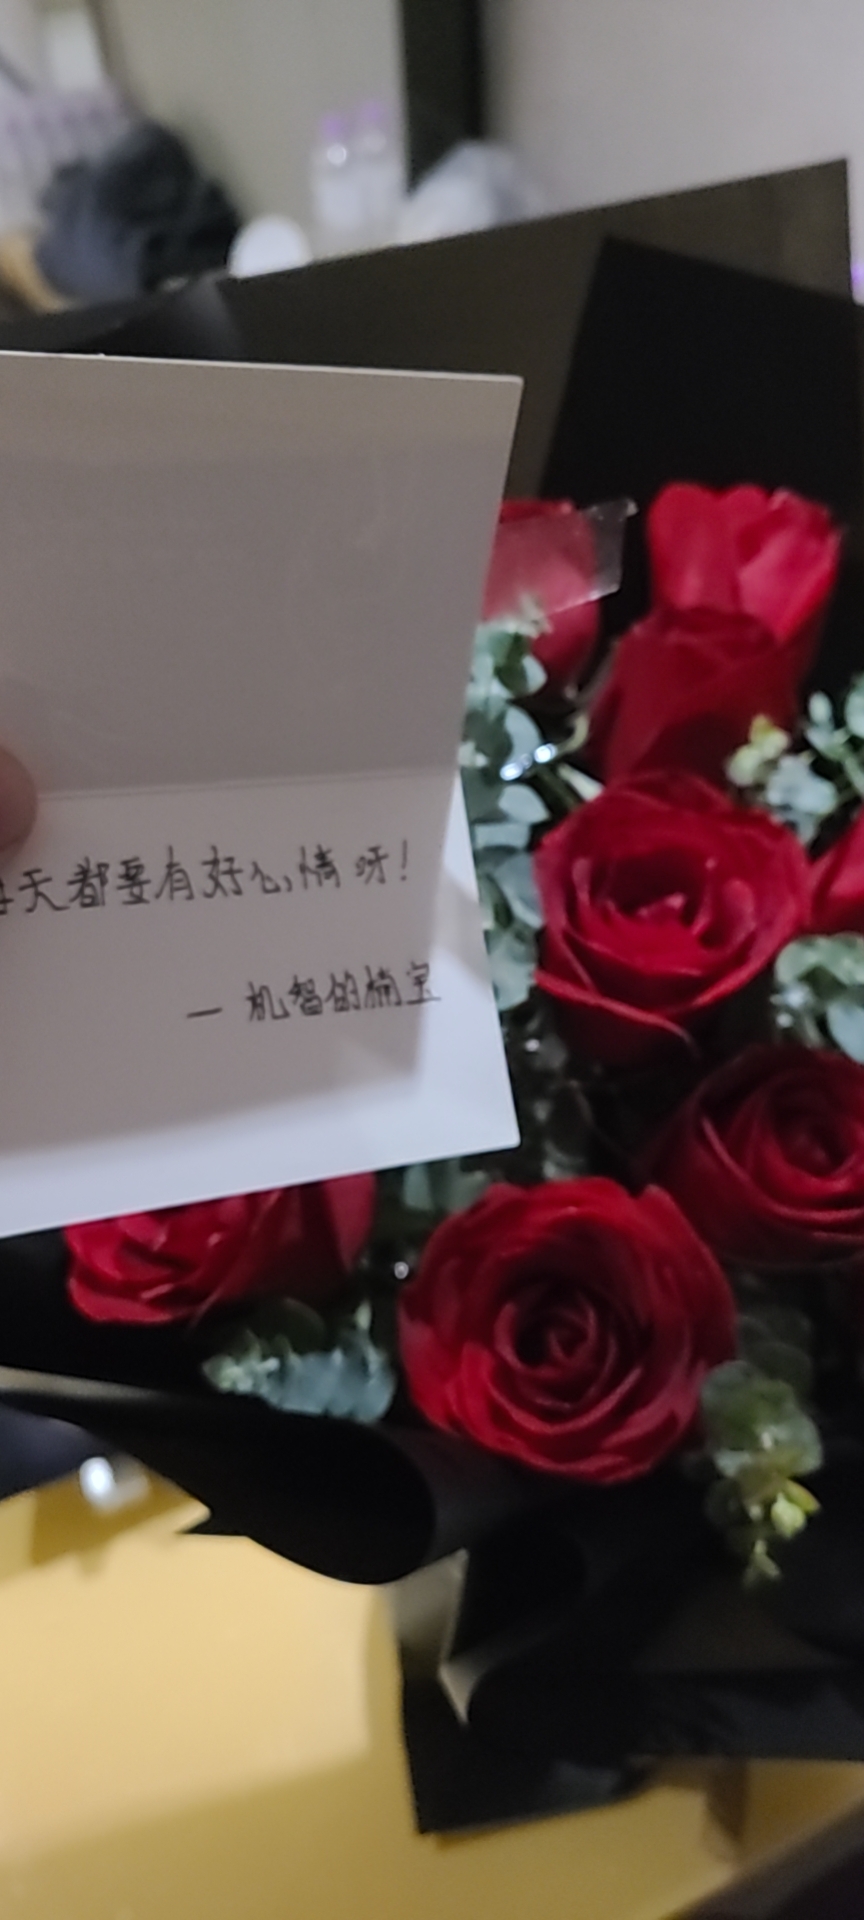 每天都要有好心情呀！
— 机智的楠宝